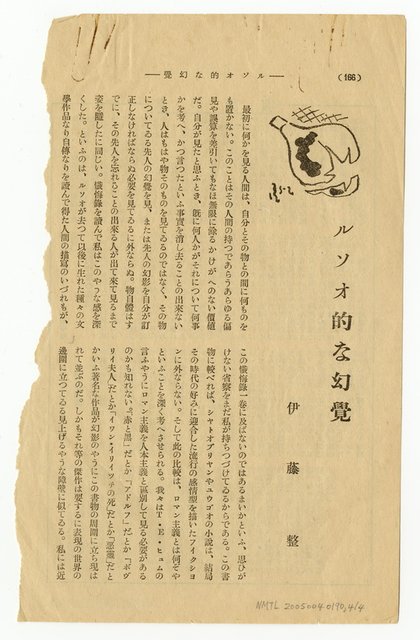 (166)
― ルソオ的な幻覺 ―
ルソオ的な幻覺
伊藤整
最初に何かを見る人間は、自分とその物との間に何もの
も置かない。このことはその人間の持つであらうあらゆる偏
見や誤算を差引いてもなほ無限に餘るかけがへのない價値
だ。自分が見たと思ふとき、旣に何人かがそれについて何事
かを考へ、かつ言つたといふ事實を消し去ることの出來ない
とき、人はもはや物そのものを見てゐるのではなく、その物
についてゐる先人の幻覺を見、または先人の幻影を自分が訂
正しなければならぬ必要を見てゐるに外ならぬ。物自體はす
でに、その先人を忘れることの出來る人が出て來て見るまで
姿を隱したに同じい。懺悔錄を讀んで私はこのやうな感を深
くした。といふのは、ルソオが去つて以後に生れた種々の文
學作品なり自傳なりを讀んで得た人間の描寫のいづれもが、
この懺悔錄一卷に及ばないのではあるまいかといふ、思ひが
けない省察をまだ私が持ちつづけてゐるからである。この書
物に較べれば、シャトオブリヤンやユウゴオの小說は、結局
その時代の好みに迎合した流行の感情型を描いたフイクショ
ンに外ならない。そして此の比較は、ロマン主義とは何ぞや
といふことを深く考へさせられる。我々はT・E・ヒュムの
言ふやうにロマン主義を人本主義と區別して見る必要がある
のかも知れない。「赤と黑」だとか「アドルフ」だとか「ボヴ
リイ夫人」だとか「イワン・イリイッチの死」だとか「惡靈」だと
かいふ著名な作品が幻影のやうにこの書物の周圍に立ち現は
れて並ぶのだ。しかもそれ等の傑作は要するに表現の世界の
邊園に立つてゐる見上げるやうな障壁に似てゐる。私には近
NMTL 20050040190,4/4